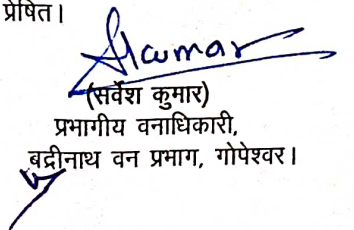 प्रेषित।
(सर्वेश कुमार)
प्रभागीय वनाधिकारी,
बद्रीनाथ वन प्रभाग, गोपेश्वर।